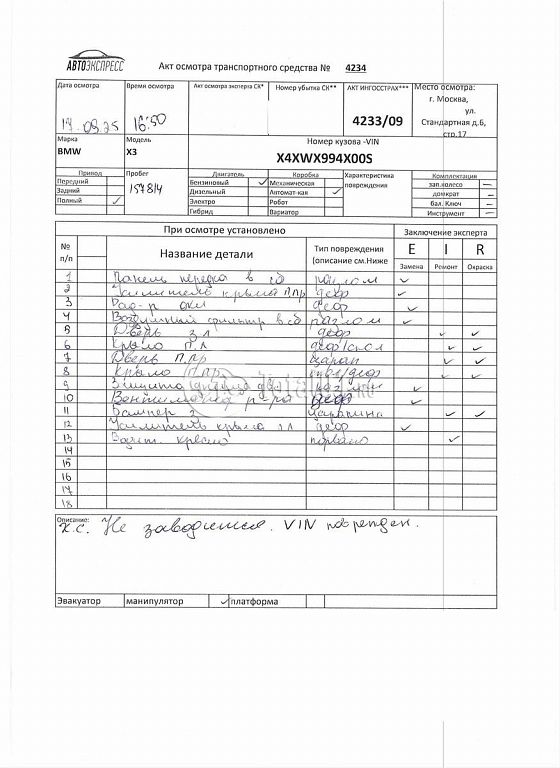 АВТОЭКСПРЕСС
Акт осмотра транспортного средства № 4234
Дата осмотра
Время осмотра
Акт осмотра эксперта СК*
Номер убытка СК**
АКТ ИНГОССТРАХ***
Место осмотра:
г. Москва,
ул.
Стандартная д.6,
стр.17
16:50
4233/09
Марка
Модель
Номер кузова -VIN
BMW
X3
X4XWX994X00S
Привод
Пробег
Двигатель
Коробка
Характеристика
повреждения
Комплектация
Передний
Бензиновый ✓
Механическая
зап.колесо —
Задний
157814
Дизельный
Автомат-кая ✓
домкрат —
Полный ✓
Электро
Робот
бал. Ключ —
Гибрид
Вариатор
Инструмент —
При осмотре установлено
Заключение эксперта
№
п/п
Название детали
Тип повреждения
(описание см.Ниже
E I R
Замена Ремонт Окраска
1 Панель передка в сб разлом ✓
2 Усилитель крыла п.пр деф ✓
3 деф ✓
4 Воздушный фильтр в сб разлом ✓
5 Дверь з л деф ✓ ✓
6 Крыло п.л деф/скол ✓ ✓
7 Дверь п.пр царап ✓ ✓
8 Крыло п.пр деф ✓ ✓
9 Защита ✓
10 Вентилятор р-ра деф ✓
11 Бампер з царапина ✓ ✓
12 Усилитель крыла п л деф ✓
13 порвано ✓
14
15
16
17
18
Описание:
х.с. Не заводится. VIN поврежден.
Эвакуатор
манипулятор
✓ платформа